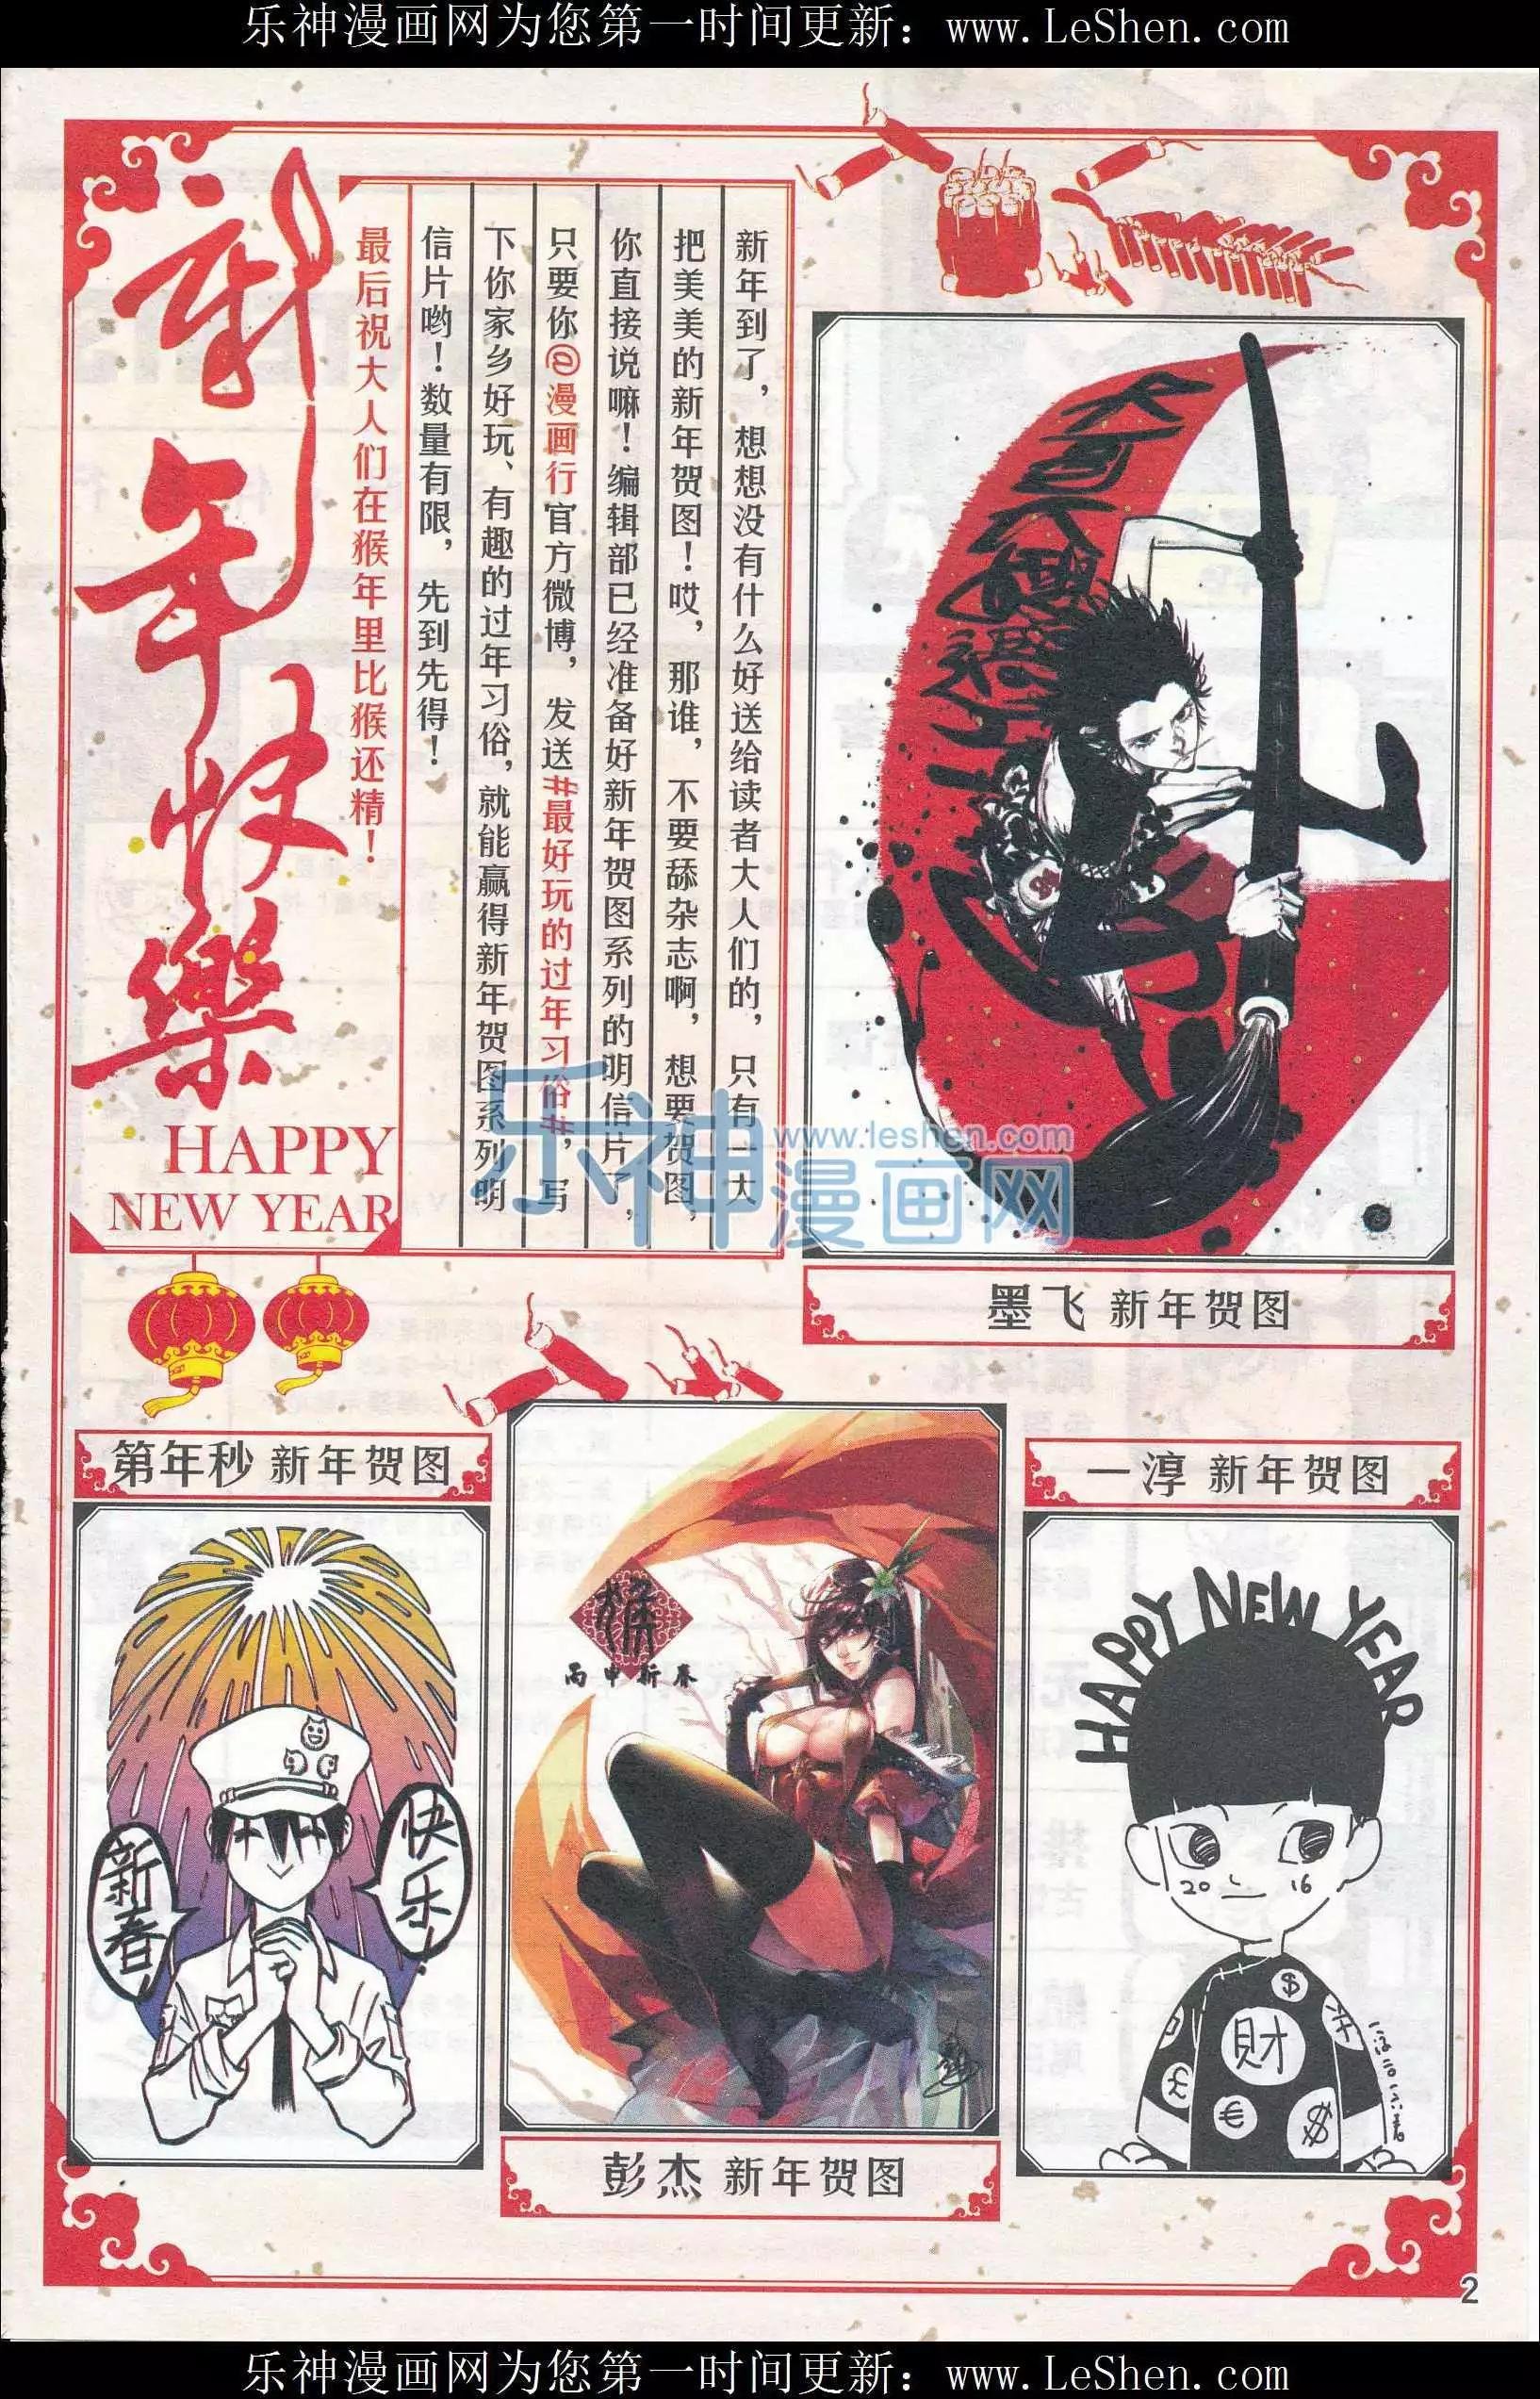 乐神漫画网为您第一时间更新：www.LeShen.com
新年快樂
HAPPY
NEW YEAR
新年到了，想想没有什么好送给读者大人们的，只有一大
把美美的新年贺图！哎，那谁，不要舔杂志啊，想要贺图，
你直接说嘛！编辑部已经准备好新年贺图系列的明信片了，
只要你@漫画行官方微博，发送#最好玩的过年习俗#，写
下你家乡好玩、有趣的过年习俗，就能赢得新年贺图系列明
信片哟！数量有限，先到先得！
最后祝大人们在猴年里比猴还精！
墨飞 新年贺图
乐神漫画网
www.leshen.com
第年秒 新年贺图
新春
快乐！
丙申新春
彭杰 新年贺图
一淳 新年贺图
HAPPY NEW YEAR
20 16
$
財
£
€
$
2
乐神漫画网为您第一时间更新：www.LeShen.com